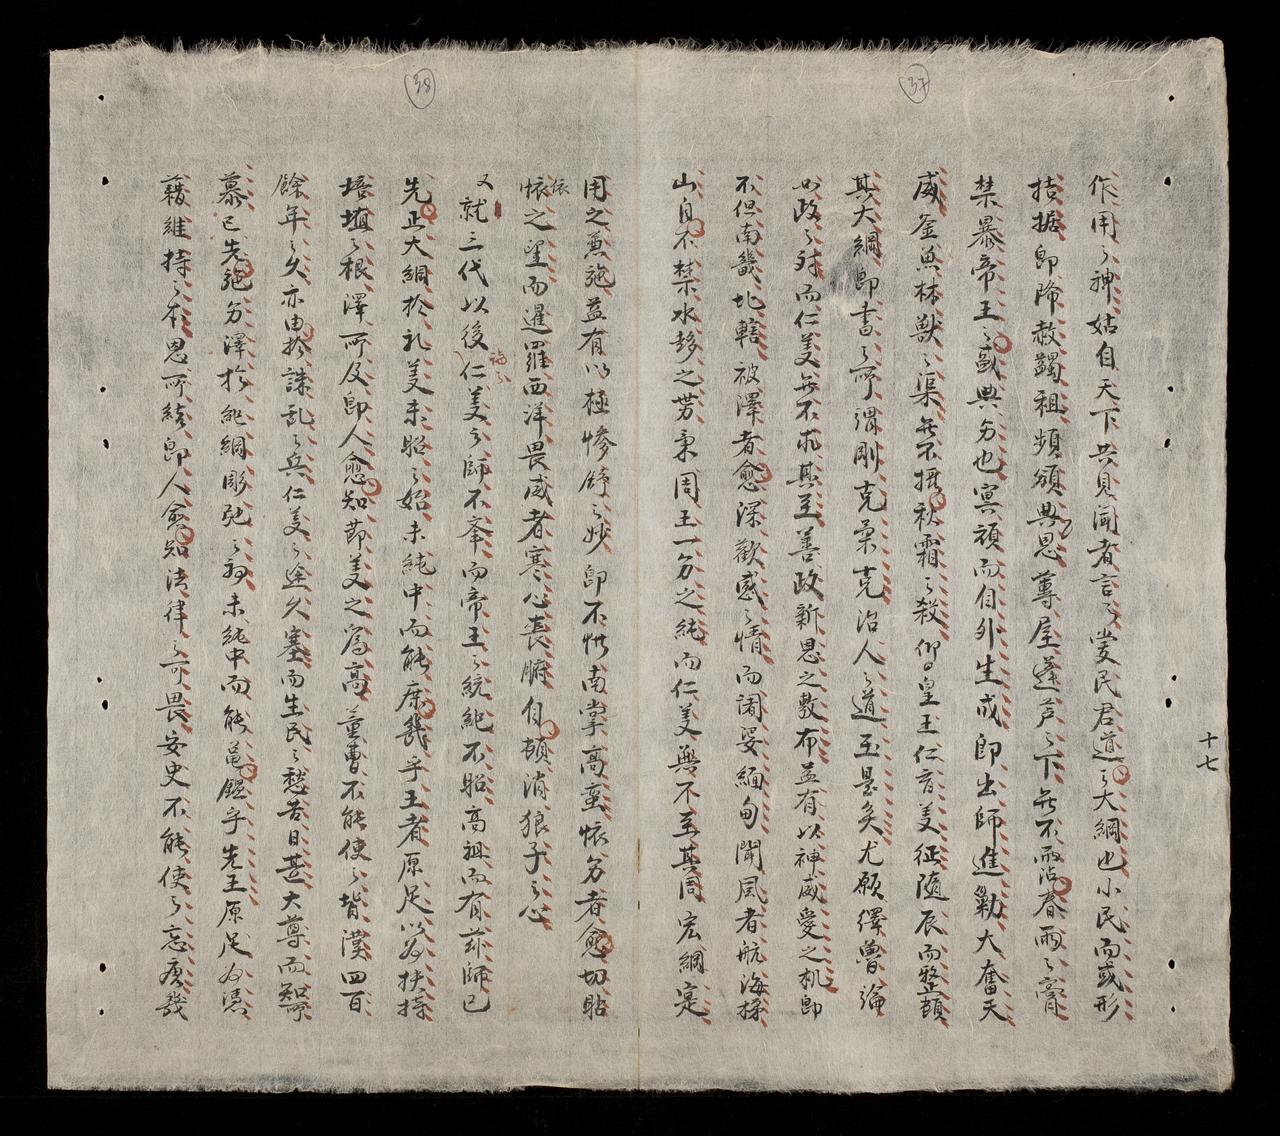 37
作用之神姑自天下共見聞者言之蒙民君道之大綱也小民而或形
拮据即降赦蠲租頻頒典恩蔀屋蓬芦之下無不霑春雨之膏
禁暴帝王之盛典分也冥頑而自外生成即出師進勦大奮天
威釜魚林獣之渠無不攝秋霜之殺仰皇王仁育美征隨辰而整頓
其大綱即書之所謂剛克柔克治人之道至是矣尤願繹曾論
如政之対而仁美無不求其至善政新恩之敷布益有以神威愛之机即
不但南畿北轄被澤者愈深歡感之情而闍婆緬甸聞風者航海梯
山自不禁水移之労秉周王一分之純而仁美無不至其周宏綱寔
十七
38
用之兼施益有以極惨舒之妙即不惟南掌高蛮懐分者愈切貼
懐之望而暹羅西洋畏威者寒心喪腑自頓消狼子之心
依
又就三代以後仁美之師不奉而帝王之統紀不昭高祖而有茲師已
先正大綱於礼美未昭之始未純中而能庶幾乎王者原足以為扶持
培埴之根澤所及即人愈知節美之為高董曹不能使之背漢四百
餘年之久亦由於誅乱之兵仁美之途久塞而生民之愁苦日甚大尊而知所
慕已先施分澤於紀綱彫弛之初未純中而能亀鑑乎先王原足為憑
藉維持之本恩所結即人愈知法律之可畏安史不能使之忘唐幾